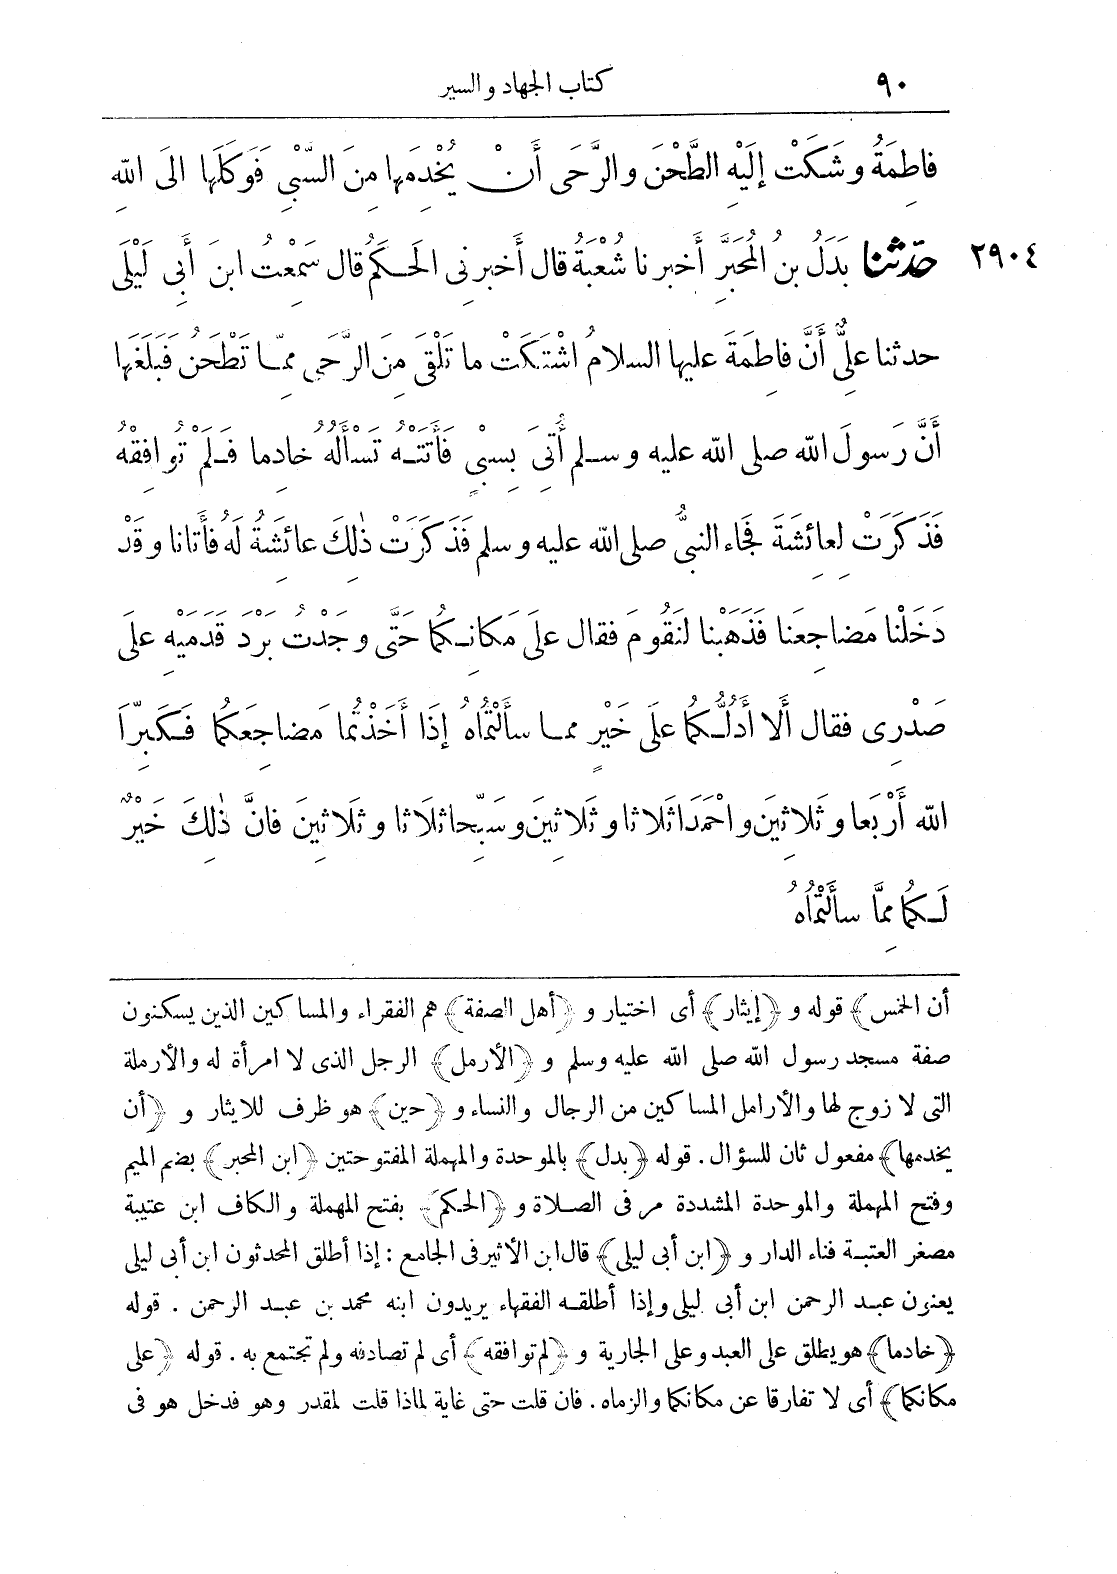 ٩٠ كتاب الجهاد والسير
فاطِمَةُ وشَكَتْ إلَيْهِ الطَّحْنَ والرَّحَى أَنْ يُخْدِمَها مِنَ السَّبْىِ فَوَكَلَها الَى اللهِ
٢٩٠٤ حدّثنا بَدَلُ بنُ المُحَبَّرِ أخبرنا شُعْبَةُ قال أخبرنى الحَكَمُ قال سَمِعْتُ ابنَ أَبِى لَيْلَى
حدثنا علىٌّ أَنَّ فاطِمَةَ عليها السلامُ اشْتَكَتْ ما تَلْقَى مِنَ الرَّحَى مِمّا تَطْحَنُ فَبَلَغَها
أَنَّ رَسولَ الله صلى الله عليه وسلم أُتِىَ بِسبْىٍ فَأَتَتْهُ تَسأَلُهُ خادِما فَلَمْ تُوافِقْهُ
فَذَكَرَتْ لِعائِشَةَ فجاء النبىُّ صلى الله عليه وسلم فَذَكَرَتْ ذٰلِكَ عائِشَةُ لَهُ فأَتانا وقَدْ
دَخَلْنا مَضاجِعَنا فَذَهَبْنا لنَقُومَ فقال علَى مَكانِكُما حَتَّى وجَدْتُ بَرْدَ قَدَمَيْهِ على
صَدْرِى فقال أَلا أَدُلُّكُما علَى خَيْرٍ مما سأَلْتُماهُ إذَا أَخَذْتُما مَضاجِعَكُما فَكَبِّرَا
الله أَرْبَعا وثَلاثِينَ واحْمَدَا ثَلاثا وثَلاثِينَ وسَبِّحا ثلَاثا وثَلاثِينَ فانَّ ذٰلِكَ خَيْرٌ
لَكُما مِمَّا سأَلْتُماهُ
أن الخمس﴾ قوله و﴿إيثار﴾ أى اختيار و﴿أهل الصفة﴾ هم الفقراء والمساكين الذين يسكنون
صفة مسجد رسول الله صلى الله عليه وسلم و﴿الأرمل﴾ الرجل الذى لا امرأة له والأرملة
التى لا زوج لها والأرامل المساكين من الرجال والنساء و﴿حين﴾ هو ظرف للايثار و﴿أن
يخدمها﴾ مفعول ثان للسؤال . قوله ﴿بدل﴾ بالموحدة والمهملة المفتوحتين ﴿ابن المحبر﴾ بضم الميم
وفتح المهملة والموحدة المشددة مر فى الصلاة و﴿الحكم﴾ بفتح المهملة والكاف ابن عتيبة
مصغر العتبة فناء الدار و﴿ابن أبى ليلى﴾ قال ابن الأثير فى الجامع : إذا أطلق المحدثون ابن أبى ليلى
يعنون عبد الرحمن ابن أبى ليلى وإذا أطلقه الفقهاء يريدون ابنه محمد بن عبد الرحمن . قوله
﴿خادما﴾ هو يطلق على العبد وعلى الجارية و﴿لم توافقه﴾ أى لم تصادفه ولم تجتمع به . قوله ﴿على
مكانكما﴾ أى لا تفارقا عن مكانكما والزماه . فان قلت حتى غاية لماذا قلت لمقدر وهو فدخل هو فى